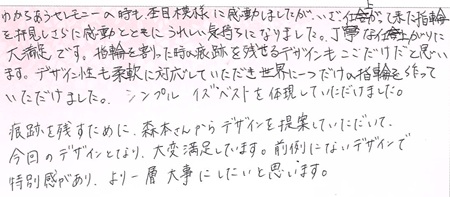 わかちあうセレモニーの時も杢目模様に感動しましたが、いざ仕上がって来た指輪
を拝見しさらに感動とともにうれしい気持ちになりました。丁寧な仕上がりに
大満足です。指輪を割った時の痕跡を残せるデザインもここだけだと思い
ます。デザイン性も柔軟に対応していただき世界に一つだけの指輪を作って
いただけました。シンプル イズ ベストを体現していただけました。
痕跡を残すために、森本さんからデザインを提案していただいて、
今回のデザインとなり、大変満足しています。前例にないデザインで
特別感があり、より一層大事にしたいと思います。